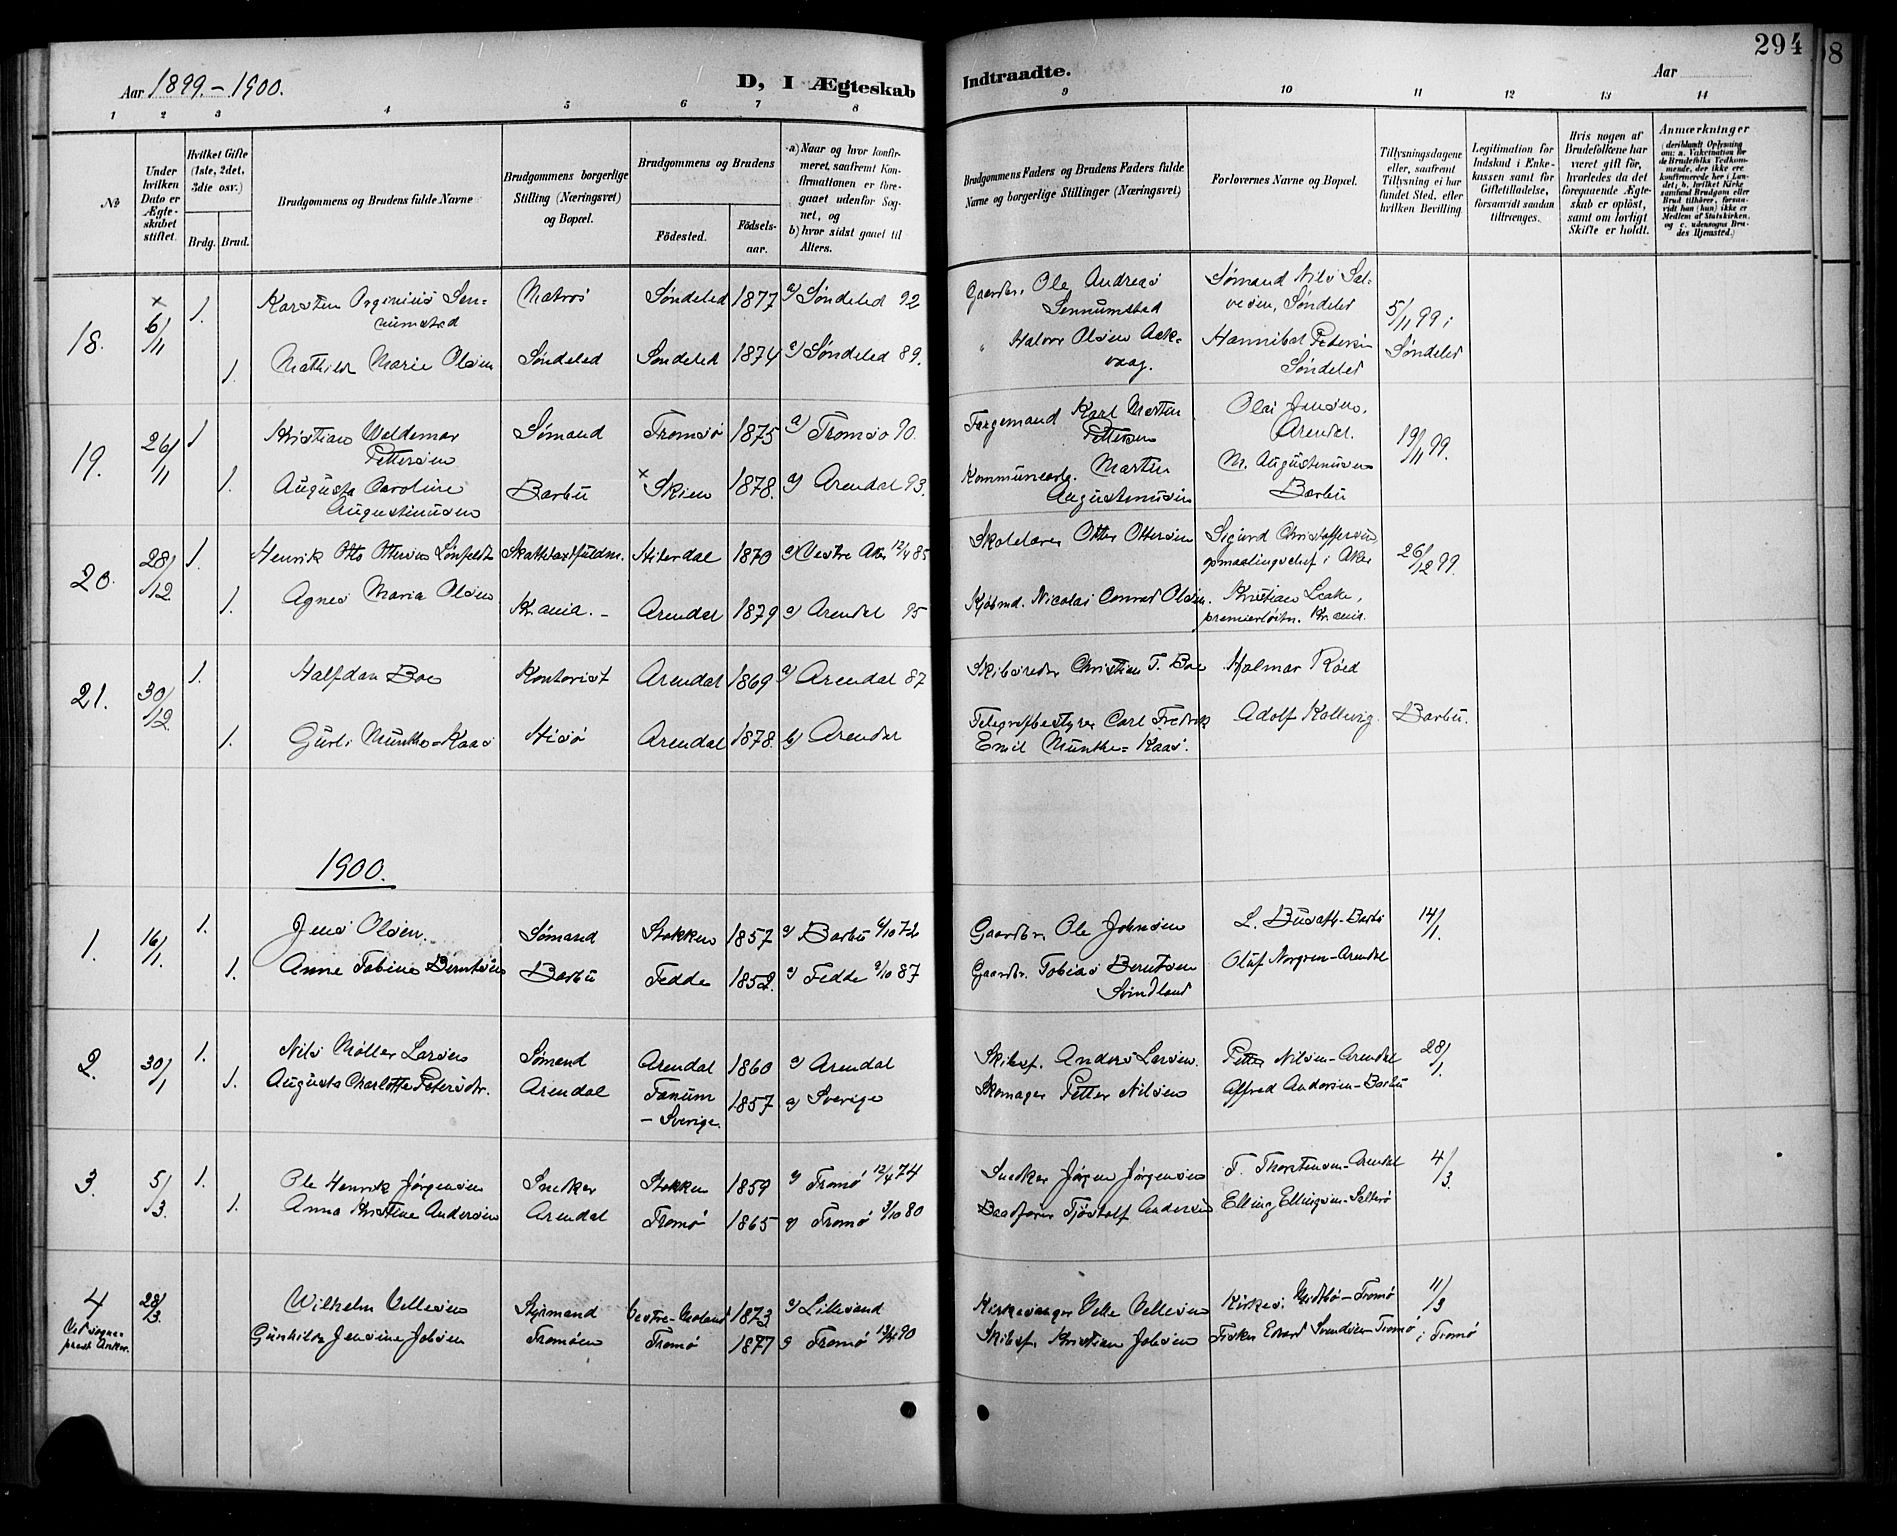 294
Aar 1899.-1900.
D, I Ægteskab
Indtraadte.
Aar
1 2 3 4 5 6 7 8
9 10 11 12 13 14
№
Under hvilken Dato er Ægteskabet stiftet.
Hvilket Gifte (1ste, 2det, 3die osv.)
Brdg. Brud.
Brudgommens og Brudens fulde Navne
Brudgommens borgerlige Stilling (Næringsvei) og Bopæl.
Brudgommens og Brudens
Fødested. Fødsels-aar.
a) Naar og hvor konfirmeret, saafremt Konfirmationen er foregaaet udenfor Sognet, og
b) hvor sidst gaaet til Alters.
Brudgommens Faders og Brudens Faders fulde Navne og borgerlige Stillinger (Næringsvei)
Forlovernes Navne og Bopæl.
Tillysningsdagene eller, saafremt Tillysning ei har fundet Sted, efter hvilken Bevilling.
Legitimation for Indskud i Enkekassen samt for Giftetilladelse, forsaavidt saadan tiltrænges.
Hvis nogen af Brudefolkene har været gift før, hvorledes da det foregaaende Ægteskab er opløst, samt om lovligt Skifte er holdt.
Anmærkninger
(deriblandt Oplysning om: a. Vakcination for de Brudefolks Vedkommende, der ikke ere konfirmerede her i Landet; b. hvilket Kirkesamfund Brudgom eller Brud tilhører, forsaavidt han (hun) ikke er Medlem af Statskirken, og c. udensogns Brudes Hjemsted.)
18. × 6/11 1. Karsten Orginius Sennumstad Matros Søndeled 1877 a) Søndeled 92 Gaardbr. Ole Andreas Sennumstad Sømand Nils Salvesen, Søndeled 5/11 99 i
1. Mathilde Marie Olsen Søndeled Søndeled 1874 a) Søndeled 89. " Halvor Olsen Aakvaag. Hannibal Petersen Søndeled Søndeled
19. 26/11 1 Kristian Valdemar Pettersen Sømand Tromsø 1875 a) Tromsø 90. Færgemand Karl Morten Pettersen Olai Jensen, Arendal. 19/11 99.
1. Augusta Caroline Augustinusen Barbu × Skien 1878. a) Arendal 93. Kommunearb. Martin Augustinusen M. Augustinusen Barbu
20. 28/12 1. Henrik Otto Ottersen Hiterdal 1870 a) Vestre Aker 12/4 85 Skolelærer Otter Ottersen Sigurd Christoffersen opmaalingschef i Aker 26/12 99.
1. Agnes Maria Olsen Kr.ania. - Arendal 1879 a) Arendal 95 Kjøbmd. Nicolai Conrad Olsen. Kristian premierløitn. Kr.ania.
21. 30/12 1. Halfdan Boe Kontorist Arendal 1869 a) Arendal 87 Skibsreder Christian T. Boe Hjalmar Röed
1. Gurli Munthe-Kaas Hisø Arendal 1878. b) Arendal Telegrafbestyrer Carl Fredrik Emil Munthe-Kaas. Adolf Kallevig. Barbu.
1900.
1. 16/1. 1. Jens Olsen. Sømand Stokken 1857 a) Barbu 6/10 72 Gaardbr. Ole Johnsen L. Busath-Barbu 14/1.
1. Anne Tobine Berntsen Barbu Fedde a) Fedde 87 Gaardbr. Tobias Berntsen Svindland Oluf Norgren-Arendal
2. 30/1 1. Nils Møller Larsen Sømand Arendal 1860 a) Arendal Skibsf. Anders Larsen. Petter Nilsen-Arendal 28/1.
1. Augusta Charlotte Petersdtr. Arendal Tanum - Sverige. 1857 a) Sverige Skomager Petter Nilsen Alfred Andersen-Barbu
3. 5/3. 1. Ole Henrik Jørgensen Snedker Stokken 1859 a) Tromø 12/4 74 Snedker Jørgen Jørgensen T. Thorstensen-Arendal 4/3.
1. Anna Kristine Andersen Arendal Tromø 1865 a) Tromø 3/10 80 Baadfører Tjøstolf Andersen Elling Ellingsen-Salterø
4 28/3. Wilhelm Vellesen Styrmand Vestre-Moland 1873 a) Lillesand Kirkesanger Velle Vellesen Kirkes. -Tromø 11/3
Ved sogneprest Gunhilde Jensine Jobsen Tromøen Tromø 1877 a) Tromø 90 Skibsf. Kristian Jobsen Fisker Edvard Svendsen-Tromø i Tromø